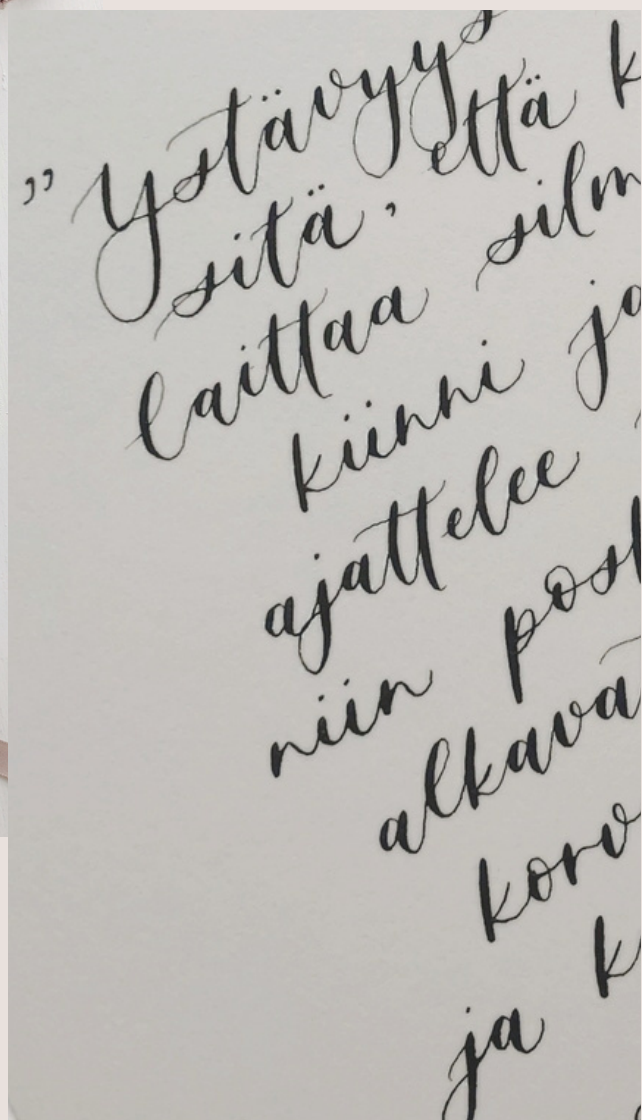 ” Ystävyys
sitä, että k
laittaa silm
kiinni ja
ajattelee
niin post
alkava
korv
ja k